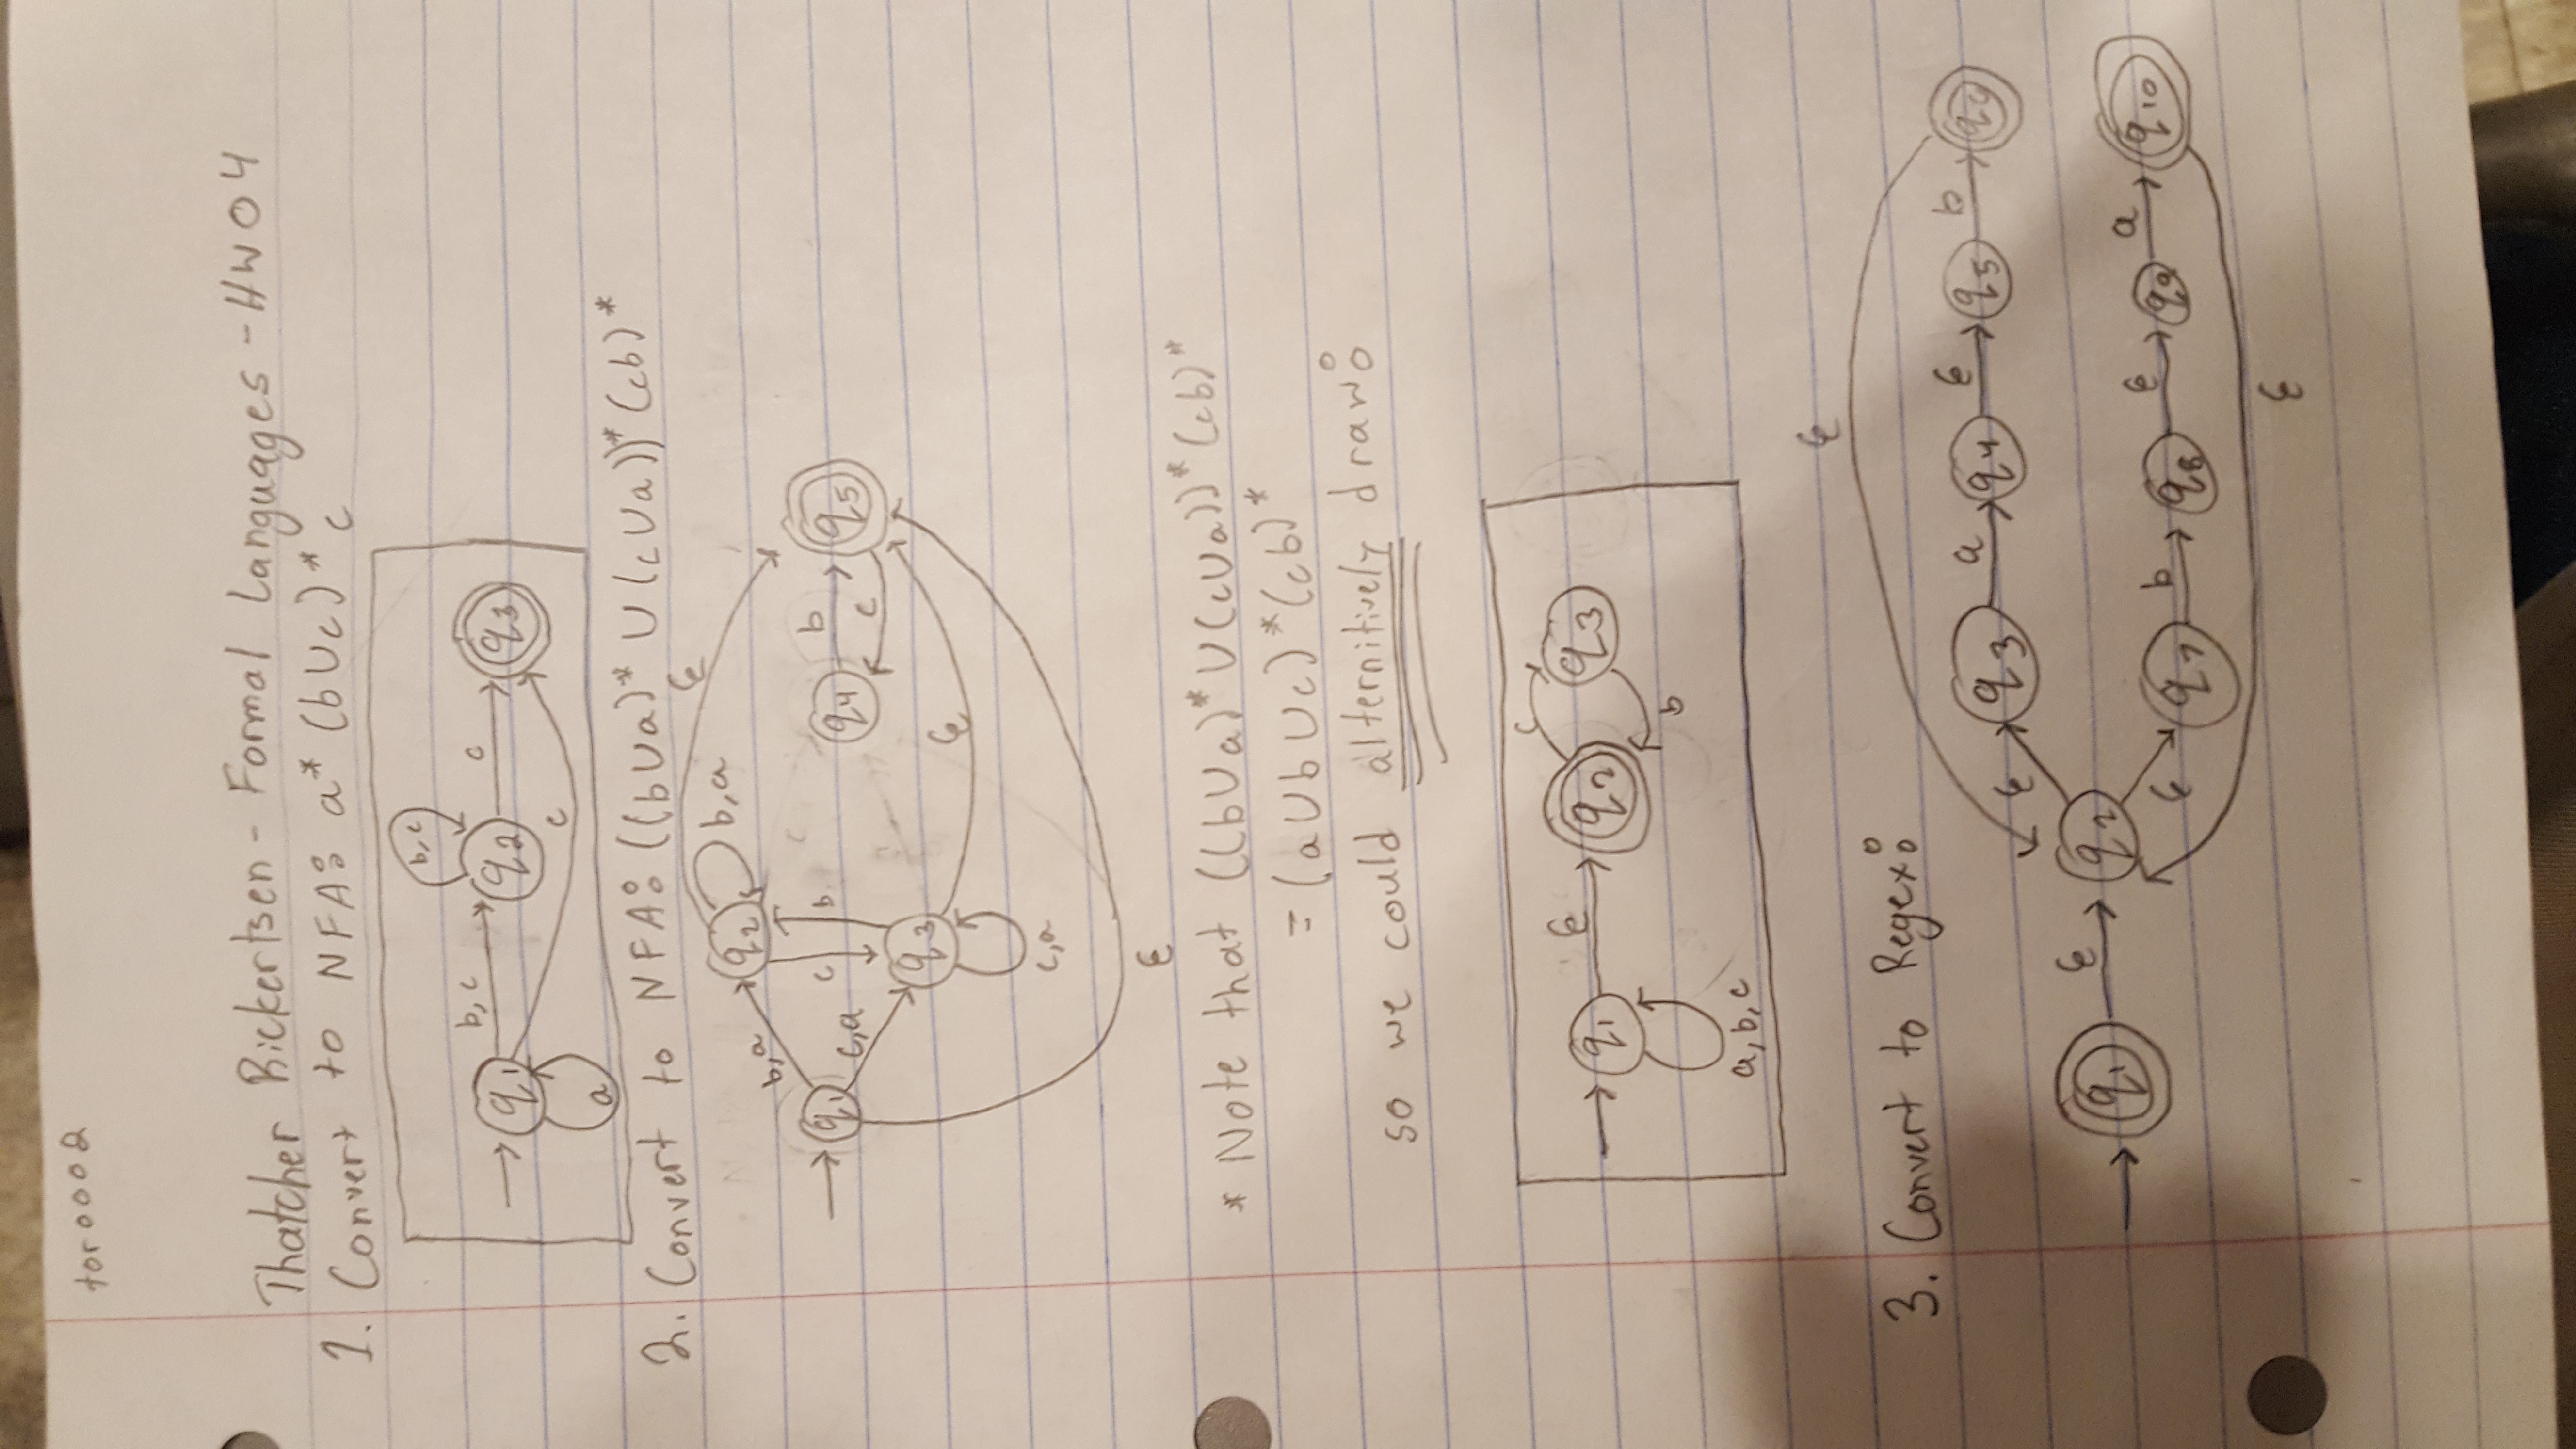 tor0002
Thatcher Rickertsen - Formal Languages - HW04
1. Convert to NFA: a* (b∪c)* c
b, c
b, c
c
q1
q2
q3
c
a
2. Convert to NFA: ((b∪a)* ∪ (c∪a))* (cb)*
ε
q2
b, a
b, a
q1
c
b
q4
b
q5
c, a
c
q3
ε
c, a
ε
* Note that ((b∪a)* ∪ (c∪a))* (cb)*
= (a∪b∪c)* (cb)*
so we could alternitively draw:
c
q1
ε
q2
q3
b
a, b, c
ε
3. Convert to Regex:
ε
q3
a
q4
ε
q5
b
q6
q1
ε
q2
ε
q7
b
q8
ε
q9
a
q10
ε